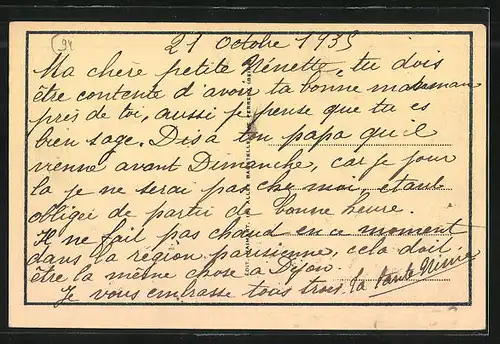 94
21 Octobre 1935
Ma chère petite Nénette, tu dois
être contente d'avoir ta bonne maman
près de toi, aussi je pense que tu es
bien sage. Dis a ton papa qu'il
vienne avant Dimanche, car je jour
la je ne serai pas che moi, étant
obligée de partir de bonne heure.
Il ne fait pas chaud en ce moment
dans la région parisienne, cela doit
être la même chose a Dijon.
Je vous embrasse tous trois. ta tante